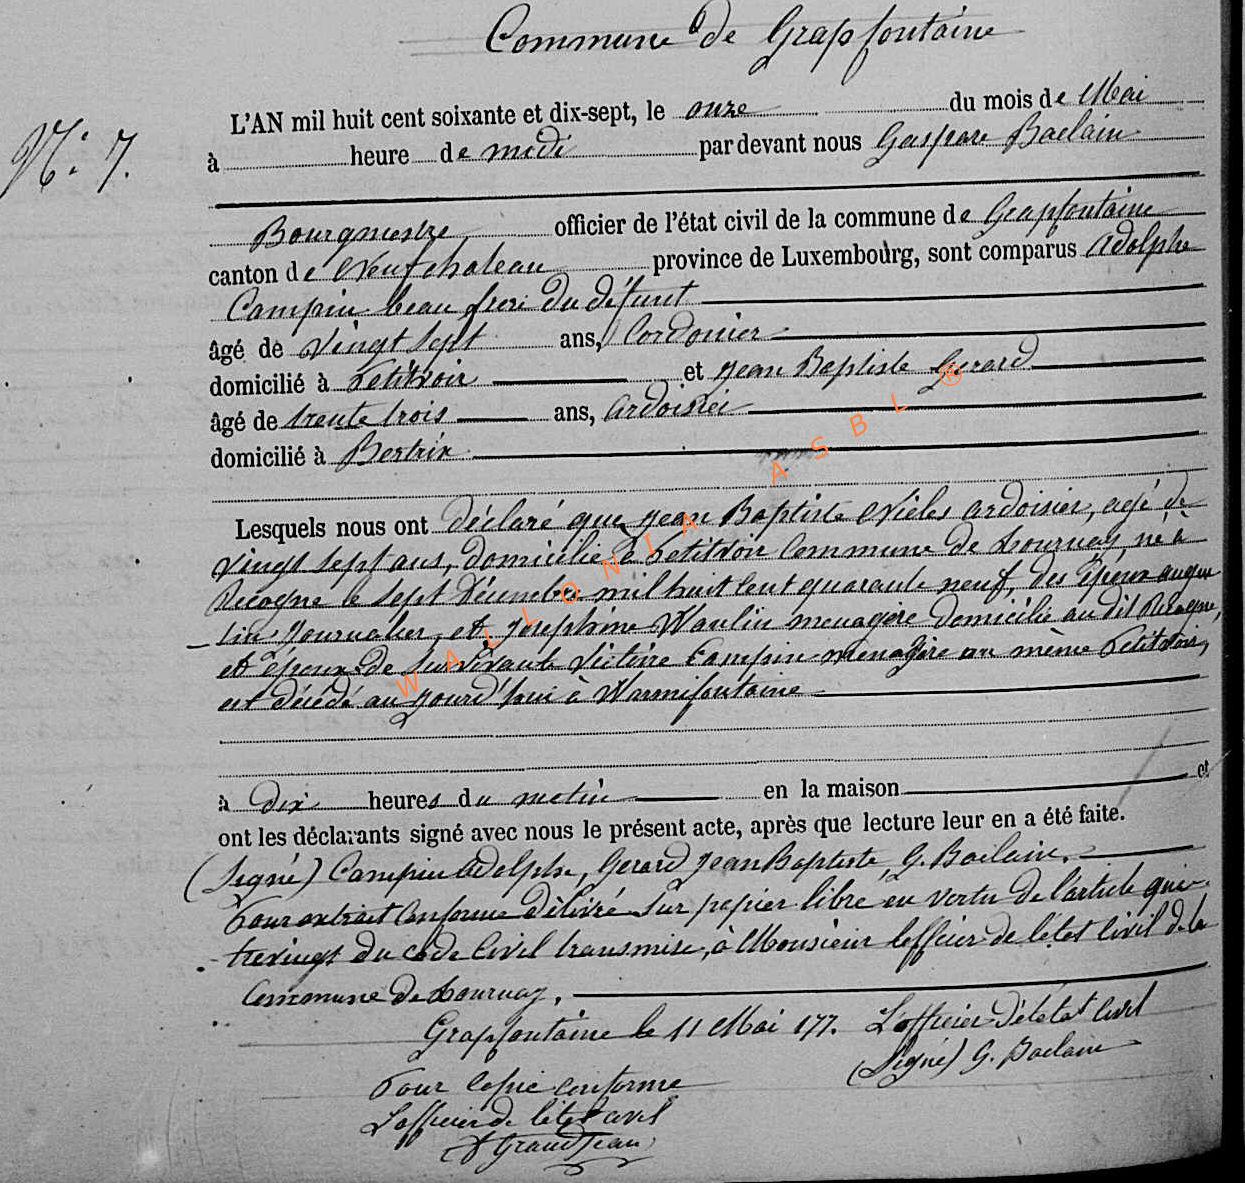 Commune de Grapfontaine
N.° 7.
L'AN mil huit cent soixante et dix-sept, le onze du mois de Mai
à heure de midi par devant nous Gaspare Baclain
Bourgmestre officier de l'état civil de la commune de Grapfontaine
canton de Neufchateau province de Luxembourg, sont comparus Adolphe
Campin beau frere du défunt
âgé de vingt sept ans, Cordonier
domicilié à Petitvoir et Jean Baptiste Gerard
âgé de trente trois ans, ardoisier
domicilié à Bertrix
Lesquels nous ont déclaré que Jean Baptiste Nieles ardoisier, agé de
vingt sept ans, domicilié à Petitvoir Commune de Tournay, né à
Recogne le sept Décembre mil huit cent quarante neuf, des époux augus
tin journalier, et Josephine Waulin menagère domicilié au dit Recogne,
et époux de survivante Victoire Campin menagère au même Petitvoir,
est décédé au jourd'hui à Warmifontaine
à dix heures du matin en la maison et
ont les déclarants signé avec nous le présent acte, après que lecture leur en a été faite.
(Signé) Campin Adolphe, Gerard Jean Baptiste, G. Baclain.
Pour extrait conforme délivré sur papier libre en vertu de l'article qua
trevingt du code Civil transmise, à Monsieur l'officier de l'état Civil de la
Commune de Tournay.
Grapfontaine le 11 Mai 177. L'officier d'état Civil
(Signé) G. Baclain
Pour Copie conforme
L'officier de l'état civil
Grandjean
WALLONIA ASBL ®